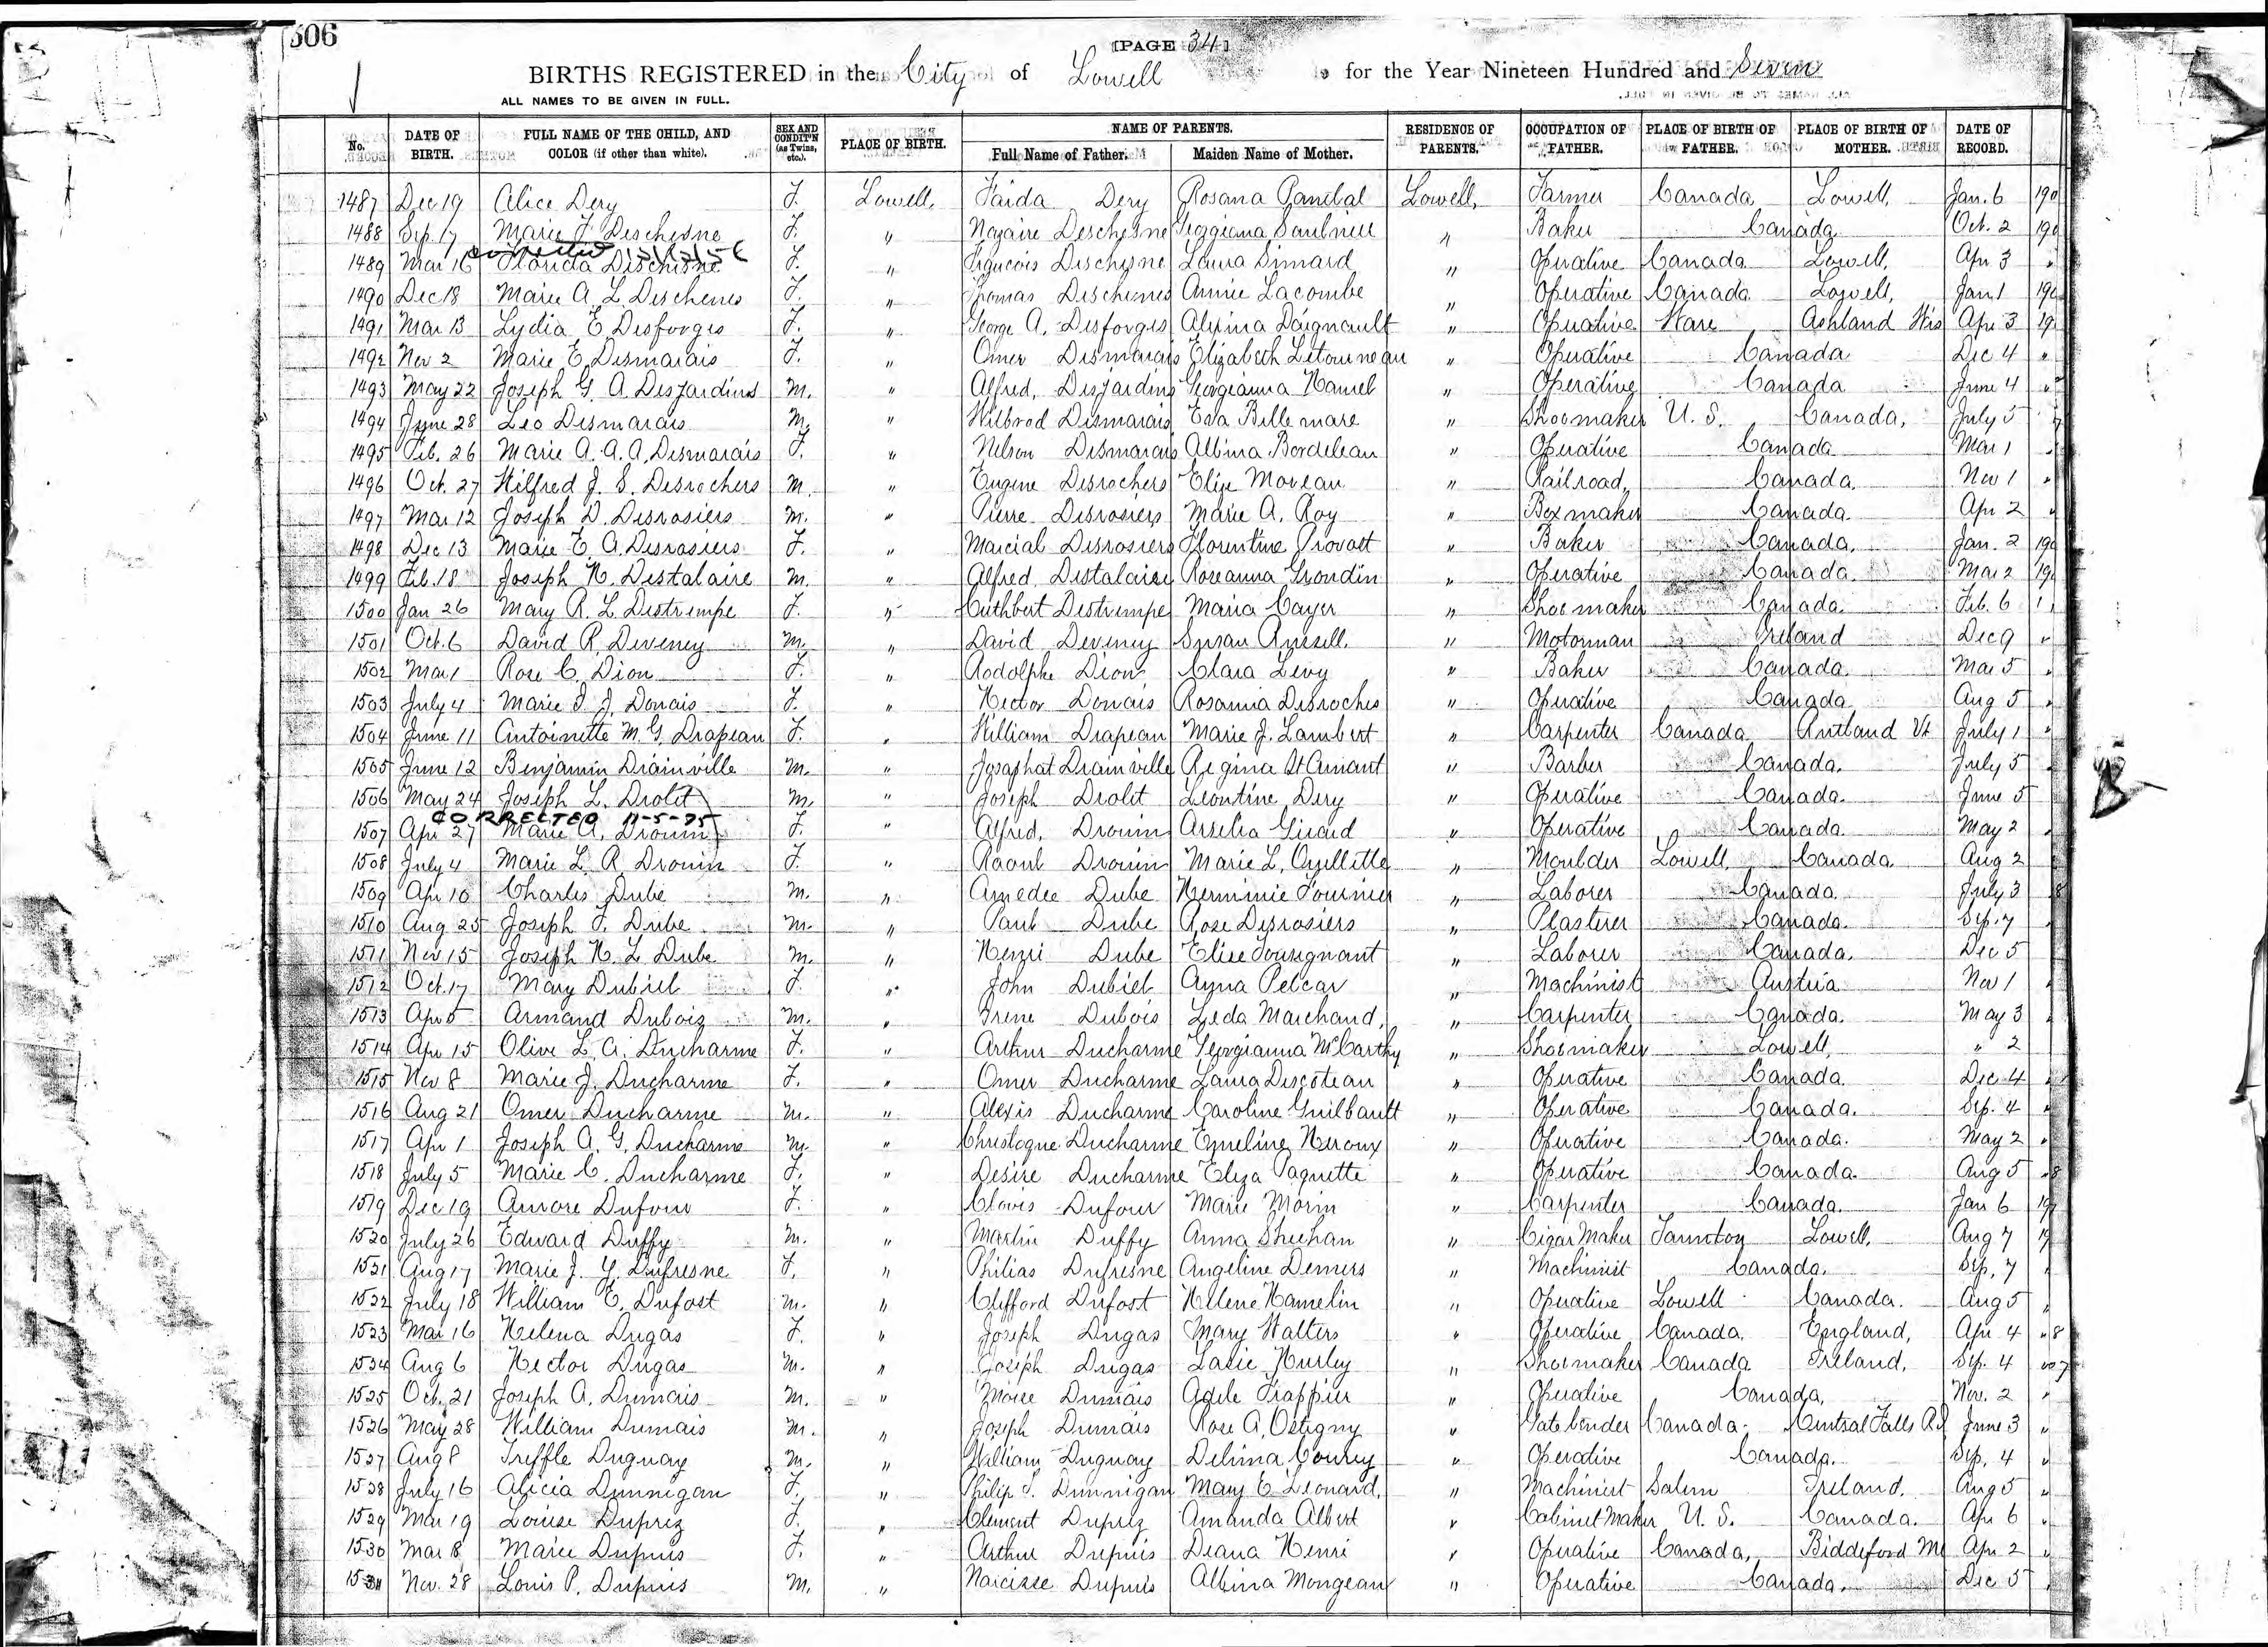 506
[PAGE 34]
BIRTHS REGISTERED in the City of Lowell for the Year Nineteen Hundred and Seven
ALL NAMES TO BE GIVEN IN FULL.
No. DATE OF BIRTH. FULL NAME OF THE CHILD, AND COLOR (if other than white). SEX AND CONDIT'N (as Twins, etc.). PLACE OF BIRTH. NAME OF PARENTS. Full Name of Father. Maiden Name of Mother. RESIDENCE OF PARENTS. OCCUPATION OF FATHER. PLACE OF BIRTH OF FATHER. PLACE OF BIRTH OF MOTHER. DATE OF RECORD.
1487 Dec 19 Alice Dery F. Lowell, Faida Dery Rosana Lowell, Farmer Canada Lowell, Jan. 6 190
1488 Sep. 17 Marie F. Deschesne F. " Nazaire Deschesne Georgiana Saulnier " Baker Canada Oct. 2 190
corrected 12/13/56
1489 Mar 16 Florida Deschesne F. " Francois Deschesne Laura Simard " Operative Canada Lowell, Apr 3 "
1490 Dec 18 Marie A. L. Deschenes F. " Thomas Deschenes Annie Lacombe " Operative Canada Lowell, Jan 1 190
1491 Mar 13 Lydia E Desforges F. " George A. Desforges Alexina Daignault " Operative Ware Ashland Wis Apr 3 19
1492 Nov 2 Marie E. Desmarais F. " Omer Desmarais Elizabeth Letourneau " Operative Canada Dec 4 "
1493 May 22 Joseph G. A. Desjardins M. " Alfred Desjardins Georgianna Hamel " Operative Canada June 4 "
1494 June 28 Leo Desmarais M. " Wilbrod Desmarais Eva Bellemare " Shoemaker U. S. Canada, July 5
1495 Feb. 26 Marie A. A. A. Desmarais F. " Nelson Desmarais Albina Bordeleau " Operative Canada Mar 1
1496 Oct. 27 Wilfred J. S. Desrochers M. " Eugene Desrochers Elise Moreau " Railroad, Canada. Nov 1 "
1497 Mar 12 Joseph D. Desrosiers M. " Pierre Desrosiers Marie A. Roy " Boxmaker Canada. Apr 2 "
1498 Dec 13 Marie E. A. Desrosiers F. " Marcial Desrosiers Florentine Provost " Baker Canada. Jan. 2 190
1499 Feb. 18 Joseph N. Destalaire M. " Alfred Destalaire Roseanna Grondin " Operative Canada. Mar 2 19
1500 Jan 26 Mary R. L. Destrempe F. " Cuthbert Destrempe Maria Cayer " Shoemaker Canada. Feb. 6
1501 Oct. 6 David R. Deveney M. " David Deveney Susan Russell. " Motorman Ireland Dec 9 "
1502 Mar 1 Rose C. Dion F. " Rodolphe Dion Clara Levy " Baker Canada. Mar 5 "
1503 July 4 Marie I. J. Donais F. " Hector Donais Rosanna Desroches " Operative Canada Aug 5 "
1504 June 11 Antoinette M. G. Drapeau F. " William Drapeau Marie J. Lambert " Carpenter Canada Rutland Vt July 1 "
1505 June 12 Benjamin Drainville M. " Josaphat Drainville Regina St Amant " Barber Canada. July 5
1506 May 24 Joseph L. Drolet M. " Joseph Drolet Leontine Dery " Operative Canada. June 5
CORRECTED 11-5-75
1507 Apr 27 Marie A. Drouin F. " Alfred Drouin Arzelia Girard " Operative Canada. May 2
1508 July 4 Marie L. R. Drouin F. " Raoul Drouin Marie L. Ouellette " Moulder Lowell, Canada Aug 2
1509 Apr 10 Charles Dube M. " Amedee Dube Herminie Fournier " Laborer Canada. July 3 8
1510 Aug 25 Joseph F. Dube M. " Paul Dube Rose Desrosiers " Plasterer Canada. Sep. 7
1511 Nov 15 Joseph H. L. Dube M. " Henri Dube Elise Tousignant " Laborer Canada. Dec 5
1512 Oct. 17 Mary Dubiel F. " John Dubiel Anna Pelcar " Machinist Austria Nov 1
1513 Apr 5 Armand Dubois M. " Irene Dubois Leda Marchand, " Carpenter Canada. May 3
1514 Apr 15 Olive L. A. Ducharme F. " Arthur Ducharme Georgianna McCarthy " Shoemaker Lowell, " 2
1515 Nov 8 Marie J. Ducharme F. " Omer Ducharme Laura Descoteau " Operative Canada. Dec 4
1516 Aug 21 Omer Ducharme M. " Alexis Ducharme Caroline Guilbault " Operative Canada. Sep. 4 "
1517 Apr 1 Joseph A. G. Ducharme M. " Christogne Ducharme Emeline Heroux " Operative Canada. May 2 "
1518 July 5 Marie C. Ducharme F. " Desire Ducharme Eliza Paquette " Operative Canada. Aug 5 8
1519 Dec 19 Aurore Dufour F. " Clovis Dufour Marie Morin " Carpenter Canada. Jan 6 19
1520 July 26 Edward Duffy M. " Martin Duffy Anna Sheehan " Cigar Maker Taunton Lowell, Aug 7 19
1521 Aug 17 Marie J. Y. Dufresne F. " Philias Dufresne Angeline Demers " Machinist Canada. Sep. 7
1522 July 18 William E. Dufost M. " Clifford Dufost Helene Hamelin " Operative Lowell Canada. Aug 5 "
1523 Mar 16 Helena Dugas F. " Joseph Dugas Mary Walters " Operative Canada. England, Apr 4 " 8
1524 Aug 6 Hector Dugas M. " Joseph Dugas Lasie Hurley " Shoemaker Canada Ireland. Sep. 4 7
1525 Oct. 21 Joseph A. Dumais M. " Moise Dumais Adele Frappier " Operative Canada, Nov. 2 "
1526 May 28 William Dumais M. " Joseph Dumais Rose A. Ostigny " Gatetender Canada Central Falls R.I June 3 "
1527 Aug 8 Treffle Duguay M. " William Duguay Delima Courcy " Operative Canada. Sep. 4 "
1528 July 16 Alicia Dunnigan F. " Philip S. Dunnigan Mary E. Leonard, " Machinist Salem Ireland. Aug 5 "
1529 Mar 19 Louise Duprez F. " Clement Duprez Amanda Albert " Cabinet Maker U. S. Canada. Apr 6 "
1530 Mar 8 Marie Dupuis F. " Arthur Dupuis Deana Henri " Operative Canada, Biddeford Me Apr 2 "
1531 Nov. 28 Louis P. Dupuis M. " Narcisse Dupuis Albina Mongeau " Operative Canada. Dec 5